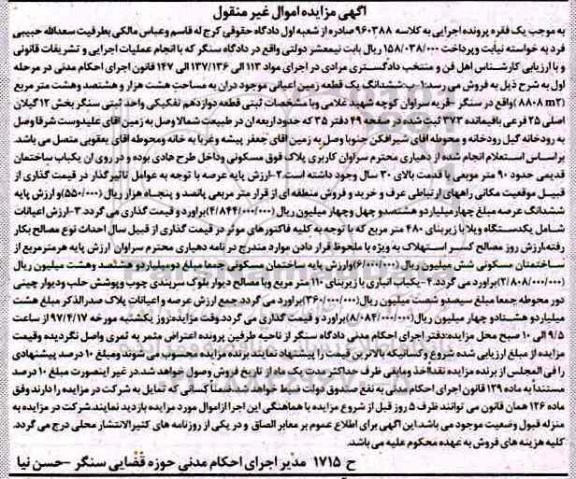 آگهی مزایده اموال غیر منقول
به موجب یک فقره پرونده اجرایی به کلاسه ۹۶۰۳۸۸ صادره از شعبه اول دادگاه حقوقی کرج له قاسم وعباس مالکی بطرفیت سعدالله حبیبی
فرد به خواسته نیابت وپرداخت ۱۵۸/۰۳۸/۰۰۰ ریال بابت نیمعشر دولتی واقع در دادگاه سنگر که با انجام عملیات اجرایی و تشریفات قانونی
و با ارزیابی کارشناس اهل فن و منتخب دادگستری مرادی در اجرای مواد ۱۱۳ الی ۱۳۷/۱۳۶ الی ۱۴۷ قانون اجرای احکام مدنی در مرحله
اول به شرح ذیل به فروش می رسد:۱-ششدانگ یک قطعه زمین اعیانی موجود دران به مساحت هشت هزار و هشتصد وهشت متر مربع
(۸۸۰۸ m2) واقع در سنگر -قریه سراوان کوچه شهید غلامی وبا مشخصات ثبتی قطعه دوازدهم تفکیکی واحد ثبتی سنگر بخش ۱۲ گیلان
اصلی ۲۵ فرعی باقیمانده ۳۷۳ ثبت شده در صفحه ۴۹ دفتر ۳۵ که حدود اربعه ان در طبیعت شمالا وصل به زمین اقای علیدوست شرقا وصل
به رودخانه گیل رودخانه و محوطه اقای شیرافکن جنوبا وصل به زمین اقای جعفر پیشه وغربا به خانه ومحوطه اقای یعقوبی متصل می باشد.
براساس استعلام انجام شده از دهیاری محترم سراوان کاربری پلاک فوق مسکونی وداخل طرح هادی بوده و در روی ان یکباب ساختمان
قدیمی حدود ۹۰ متر مربعی با قدمت بالای ۳۰ سال وجود داشته است.۲-ارزش پایه عرصه با توجه به عوامل تاثیرگذار در قیمت گذاری از
قبیل موقعیت مکانی راههای ارتباطی عرف و خرید و فروش منطقه ای از قرار متر مربعی پانصد و پنجاه هزار ریال (۵۵۰/۰۰۰) و ارزش پایه
ششدانگ عرصه مبلغ چهارمیلیارد و هشتصدو چهل وچهار میلیون ریال (۴/۸۴۴/۰۰۰/۰۰۰) براورد و قیمت گذاری می گردد.۳-ارزش اعیانات
شامل یکدستگاه ویلا با زیربنای ۴۸۰ متر مربع که با توجه به کلیه فاکتورهای موثر در قیمت گذاری از قبیل سال احداث نوع مصالح بکار
رفته ارزش روز مصالح کسر استهلاک به ویژه با ملحوظ قرار دادن موارد مندرج در نامه دهیاری محترم سراوان ارزش پایه هرمترمربع از
ساختمتان مسکونی شش میلیون ریال (۶/۰۰۰/۰۰۰) وارزش پایه ساختمان مسکونی جمعا مبلغ دومیلیارد هشتصد وهشت میلیون ریال
(۲/۸۰۸/۰۰۰/۰۰۰) براورد می گردد.۴-یکباب انباری با زیربنای ۱۱۰ متر مربع وبا مصالح دیوار بلوک سربندی چوب وپوشش حلب ودیوار چینی
دور محوطه جمعا مبلغ سیصدو شصت میلیون ریال (۳۶۰/۰۰۰/۰۰۰) براورد می گردد.جمع ارزش عرصه و اعیانات پلاک صدرالذکر مبلغ هشت
میلیاردو هشتادو چهار میلیون ریال (۸/۰۸۴/۰۰۰/۰۰۰) براورد و قیمت گذاری می گردد وقت مزایده:روز یکشنبه مورخه ۹۷/۴/۱۷ از ساعت
۹/۵ الی ۱۰ صبح محل مزایده:دفتر اجرای احکام مدنی دادگاه سنگر از ناحیه طرفین پرونده اعتراض مثمر به ثمری واصل نگردیده وقیمت
مزایده از مبلغ ارزیابی شده شروع وکسانیکه بالاترین قیمت را پیشنهاد نمایند برنده مزایده محسوب می شوند ومبلغ ۱۰ درصد پیشنهادی
را فی المجلس از برنده مزایده نقدا اخذ ومابقی ظرف حداکثر مدت یک ماه از تاریخ فروش وصول خواهد شد.در غیر اینصورت مبلغ ۱۰ درصد
مستندا به ماده ۱۲۹ قانون اجرای احکام مدنی به نفع صندوق دولت ضبط خواهد شد ضمنا کسانی که تمایل به شرکت در مزایده را دارند وفق
ماده ۱۲۶ همان قانون می توانند ظرف ۵ روز قبل از شروع مزایده با هماهنگی این اجرا از اموال مورد مزایده بازدید نمایند.شرکت در مزایده به
منزله قبول وضعیت موجود می باشد.این آگهی برای اطلاع عموم بر معابر الصاق و در یکی از روزنامه های کثیرالانتشار محلی درج می گردد.
کلیه هزینه های فروش به عهده محکوم علیه می باشد.
ح ۱۷۱۵ مدیر اجرای احکام مدنی حوزه قضایی سنگر -حسن نیا